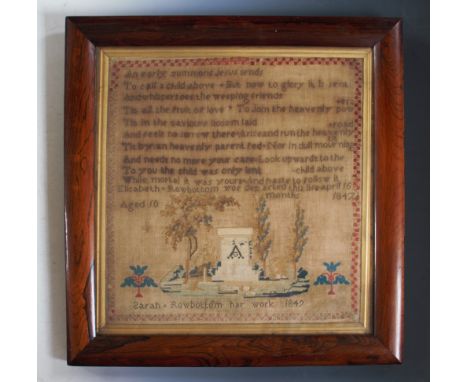 An early summons Jesus sends
To call a child above But now to glory it is sent
And whispers oer the weeping friends
Tis all the fruit of love To Join the heavenly
Tis in the saviours bosom laid
And feels no sorrow there Arise and run the heavenly road
Tis by an heavenly parent fed Nor in dull mourning
And needs no more your care Look upwards to the
To you the child was only lent child above
While mortal it was yours And haste to follow it
Elizabeth Rowbottom was departed this life april 16
Aged 10 months 1842
A
Sarah Rowbottom her work 1849